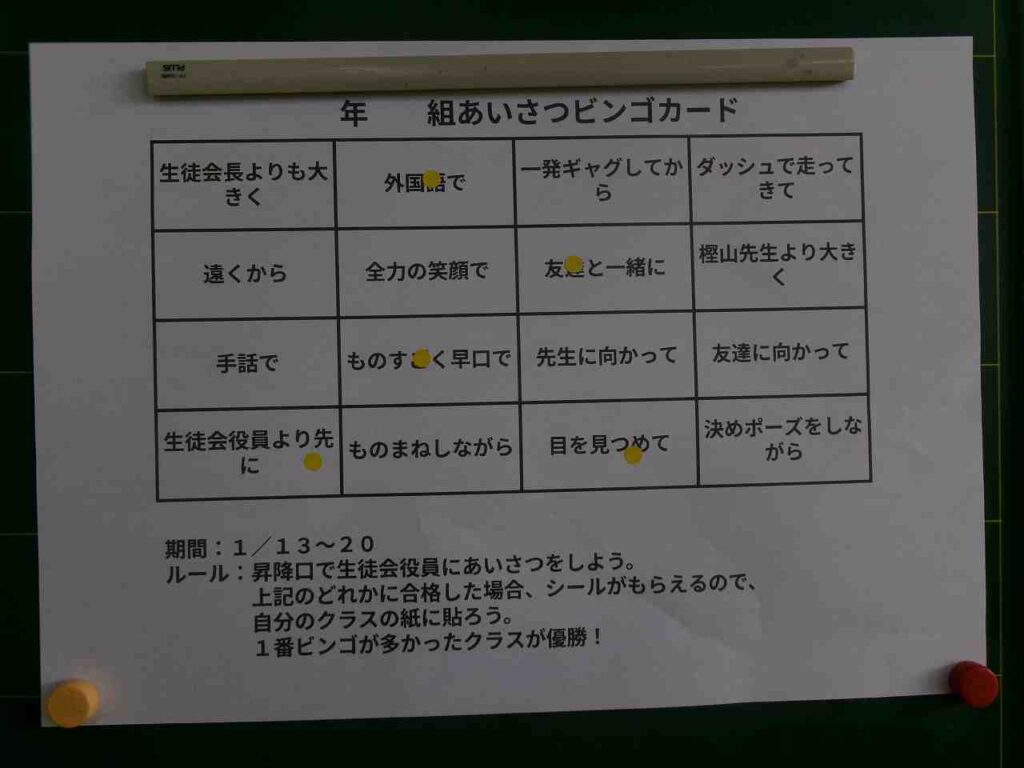 PLUS
年　　組あいさつビンゴカード
生徒会長よりも大
きく
外国語で
一発ギャグしてか
ら
ダッシュで走って
きて
遠くから
全力の笑顔で
友達と一緒に
樫山先生より大き
く
手話で
ものすごく早口で
先生に向かって
友達に向かって
生徒会役員より先
に
ものまねしながら
目を見つめて
決めポーズをしな
がら
期間：１／１３～２０
ルール：昇降口で生徒会役員にあいさつをしよう。
上記のどれかに合格した場合、シールがもらえるので、
自分のクラスの紙に貼ろう。
１番ビンゴが多かったクラスが優勝！